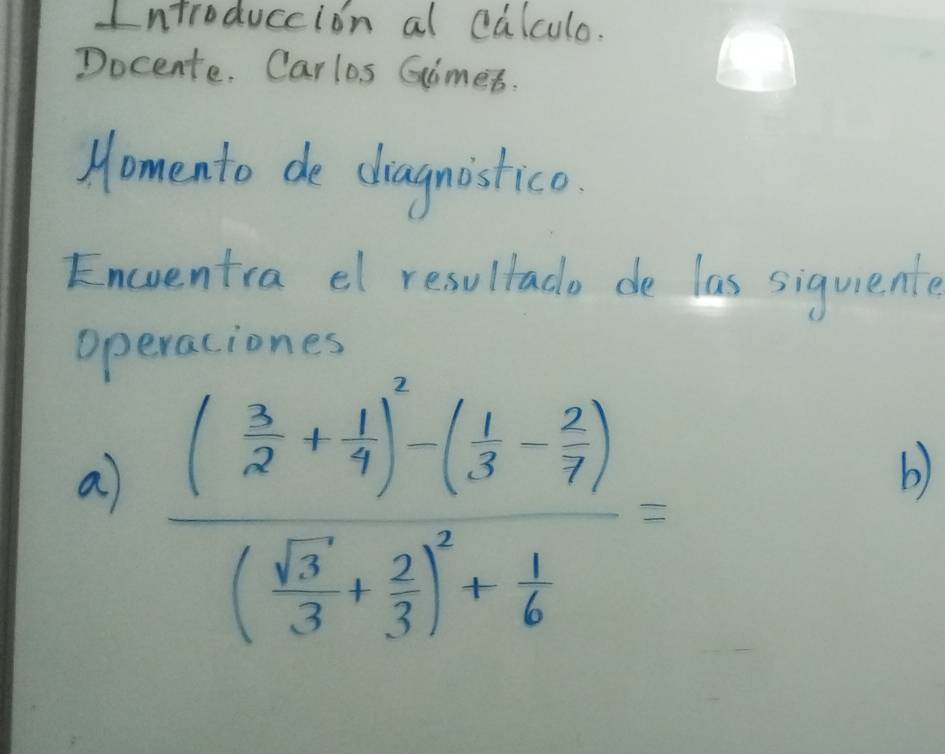 Introducción al Cálculo.
Docente. Carlos Gómez.
Momento de diagnóstico.
Encuentra el resultado de las siguiente
operaciones
a) ((3/2 + 1/4)² - (1/3 - 2/7)) / ((√3/3 + 2/3)² + 1/6) =
b)